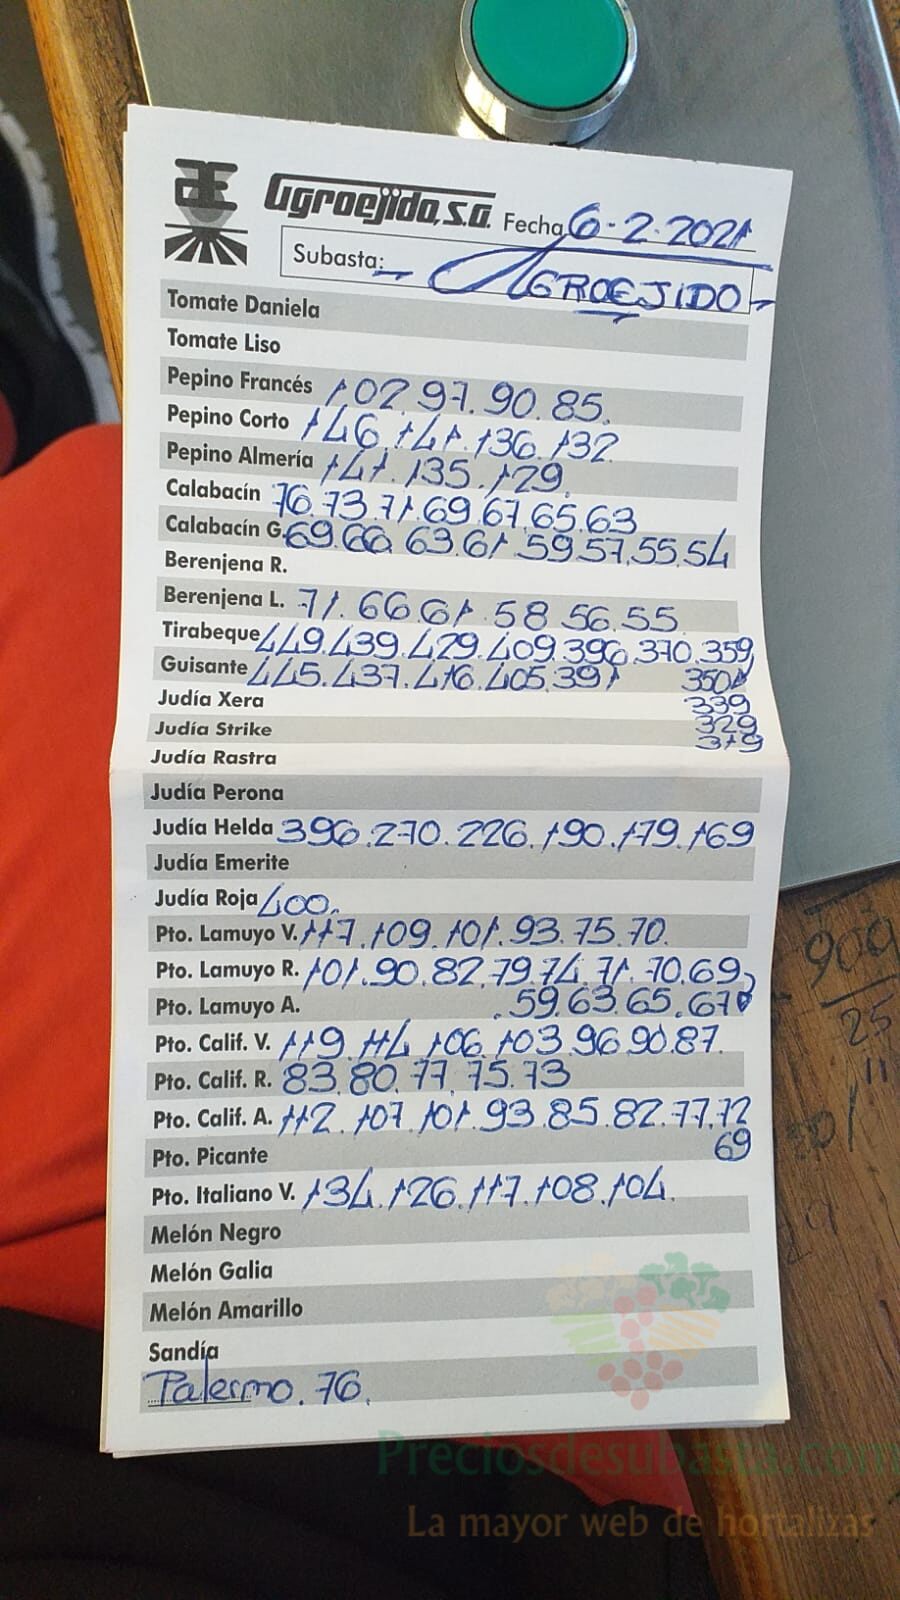 Agroejido, S.A. Fecha 6-2-2021
Subasta: AGROEJIDO
Tomate Daniela
Tomate Liso
Pepino Francés 102.97.90.85.
Pepino Corto 146.141.136.132
Pepino Almería 141.135.129.
Calabacín 76.73.71.69.67.65.63
Calabacín G. 69.66.63.61.59.57.55.54
Berenjena R.
Berenjena L. 71.66.61.58.56.55
Tirabeque 449.439.429.409.396.370.359
350
339
329
319
Guisante 445.437.416.405.391
Judía Xera
Judía Strike
Judía Rastra
Judía Perona
Judía Helda 396.270.226.190.179.169
Judía Emerite
Judía Roja 400.
Pto. Lamuyo V. 117.109.101.93.75.70.
Pto. Lamuyo R. 101.90.82.79.74.71.70.69
.59.63.65.67
Pto. Lamuyo A.
Pto. Calif. V. 119.114.106.103.96.90.87.
Pto. Calif. R. 83.80.77.75.73
Pto. Calif. A. 112.107.101.93.85.82.77.72
69
Pto. Picante
Pto. Italiano V. 134.126.117.108.104.
Melón Negro
Melón Galia
Melón Amarillo
Sandía
Palermo. 76.
Preciosdesubasta.com
La mayor web de hortalizas
900
25
11